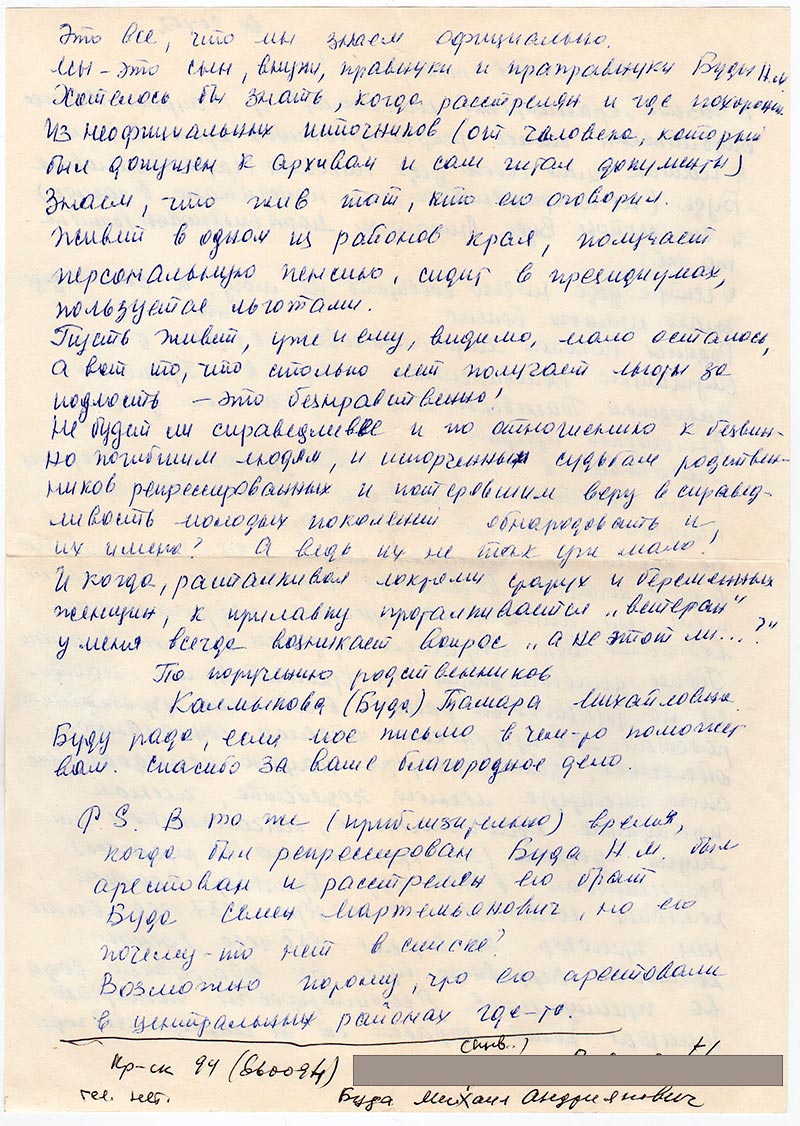 Это все, что мы знаем официально.
Мы – это сын, внуки, правнуки и праправнуки Буды Н.М.
Хотелось бы знать, когда расстрелян и где похоронен.
Из неофициальных источников (от человека, который
был допущен к архивам и сам читал документы)
Знаем, что жив тот, кто его оговорил.
Живет в одном из районов края, получает
персональную пенсию, сидит в президиумах,
пользуется льготами.
Пусть живет, уже и ему, видимо, мало осталось,
а вот то, что столько лет получает льготы за
подлость – это безнравственно!
Не будет ли справедливее и по отношению к безвин-
но погибшим людям, и испорченным судьбам родствен-
ников репрессированных и потерявшим веру в справед-
ливость молодых поколений обнародовать и
их имена? А ведь их не так уж мало!
И когда, расталкивая локтями старух и беременных
женщин, к прилавку проталкивается „ветеран"
у меня всегда возникает вопрос „а не этот ли...?"
По поручению родственников
Калмыкова (Буда) Тамара Михайловна.
Буду рада, если мое письмо в чем-то поможет
вам. Спасибо за ваше благородное дело.
P.S. В то же (приблизительно) время,
когда был репрессирован Буда Н.М. был
арестован и расстрелян его брат
Буда Семен Мартемьянович, но его
почему-то нет в списке?
Возможно потому, что его арестовали
в центральных районах где-то.
Кр-ск 94 (660094)
тел. нет. Буда Михаил Андриянович